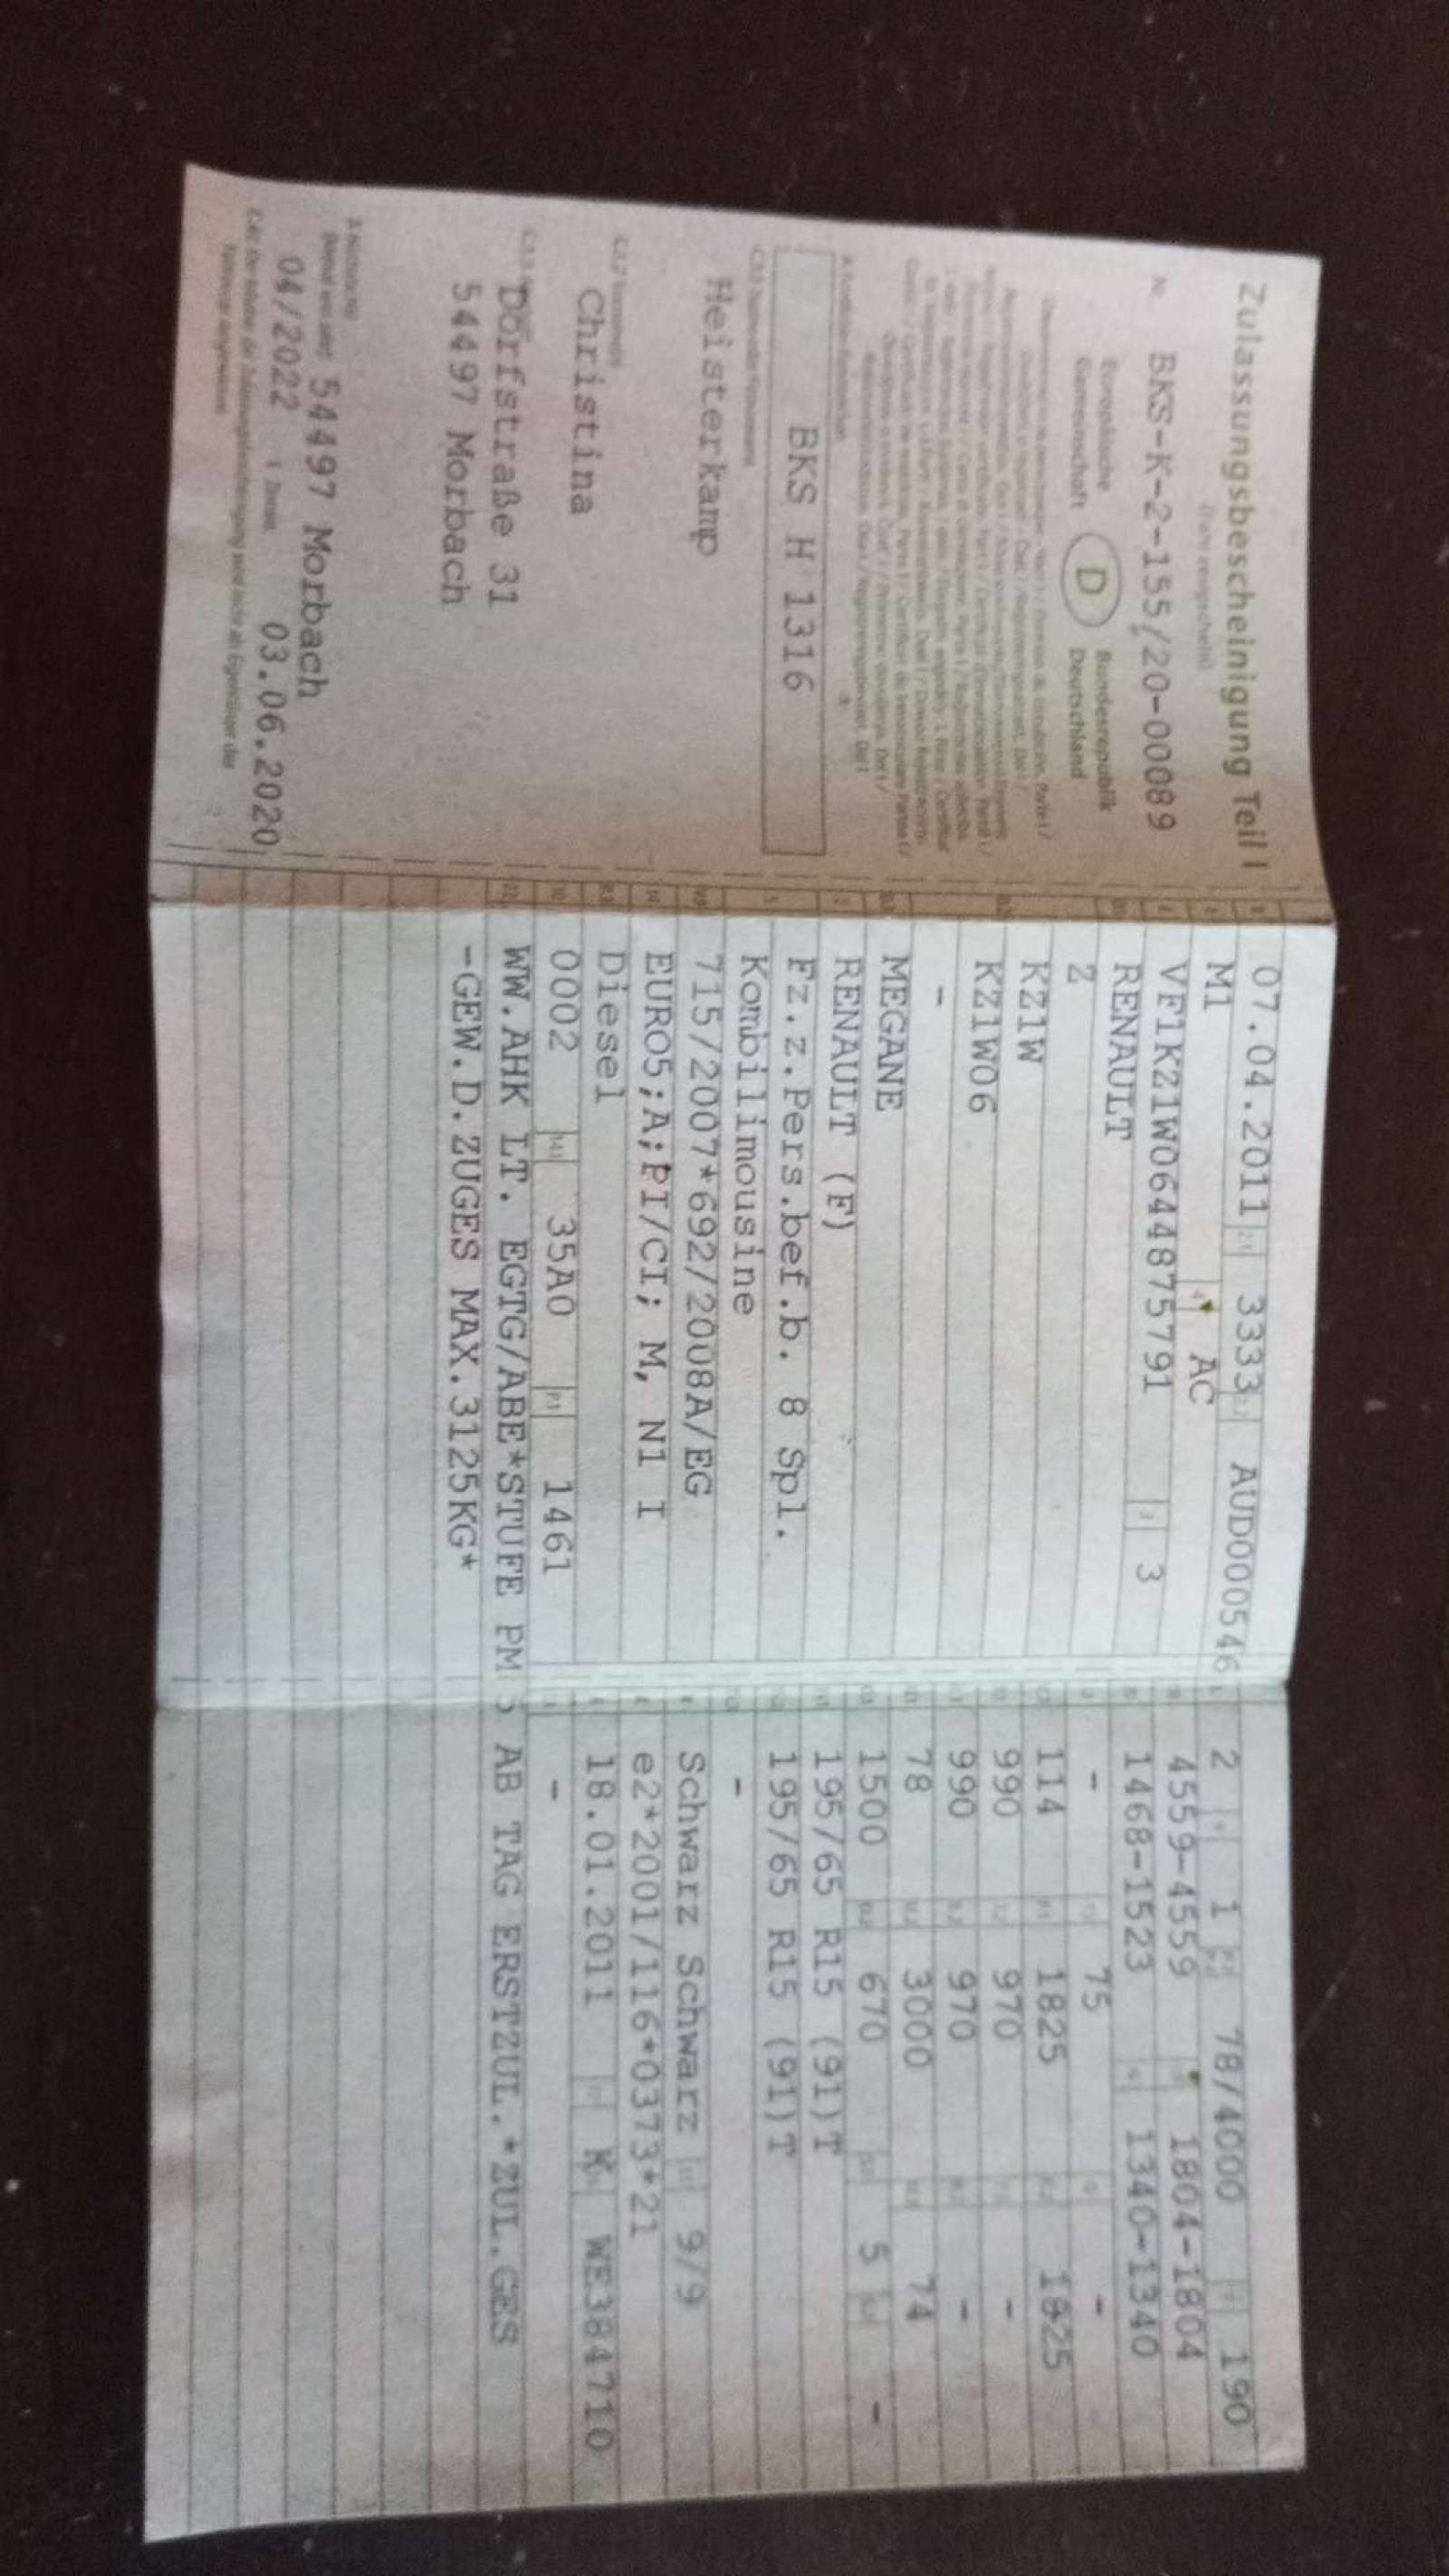 Zulassungsbescheinigung Teil I
(Fahrzeugschein)
Nr. BKS-K-2-155/20-00089
Europäische Gemeinschaft
D
Bundesrepublik Deutschland
BKS H 1316
Heisterkamp
Christina
Dorfstraße 31
54497 Morbach
54497 Morbach
04/2022 03.06.2020
C.4c Der Inhaber der Zulassungsbescheinigung wird nicht als Eigentümer des
Fahrzeugs ausgewiesen.
07.04.2011 2.1 3333 2.2 AUD000546
M1 AC
VF1KZ1W0644875791 3 3
RENAULT
Z
KZ1W
KZ1W06
-
MEGANE
RENAULT (F)
Fz.z.Pers.bef.b. 8 Spl.
Kombilimousine
715/2007*692/2008A/EG
EURO5;A;PI/CI; M, N1 I
Diesel
0002 14.1 35A0 P.1 1461
2 1 78/4000 190
4559-4559 1804-1804
1468-1523 1340-1340
- 75 -
114 1825 1825
990 970 -
990 970 -
78 3000 74
1500 670 5 -
195/65 R15 (91)T
195/65 R15 (91)T
-
Schwarz Schwarz 9/9
e2*2001/116*0373*21
18.01.2011 K WE384710
-
WW.AHK LT. EGTG/ABE*STUFE PM 5 AB TAG ERSTZUL.*ZUL.GES
-GEW.D.ZUGES MAX.3125KG*